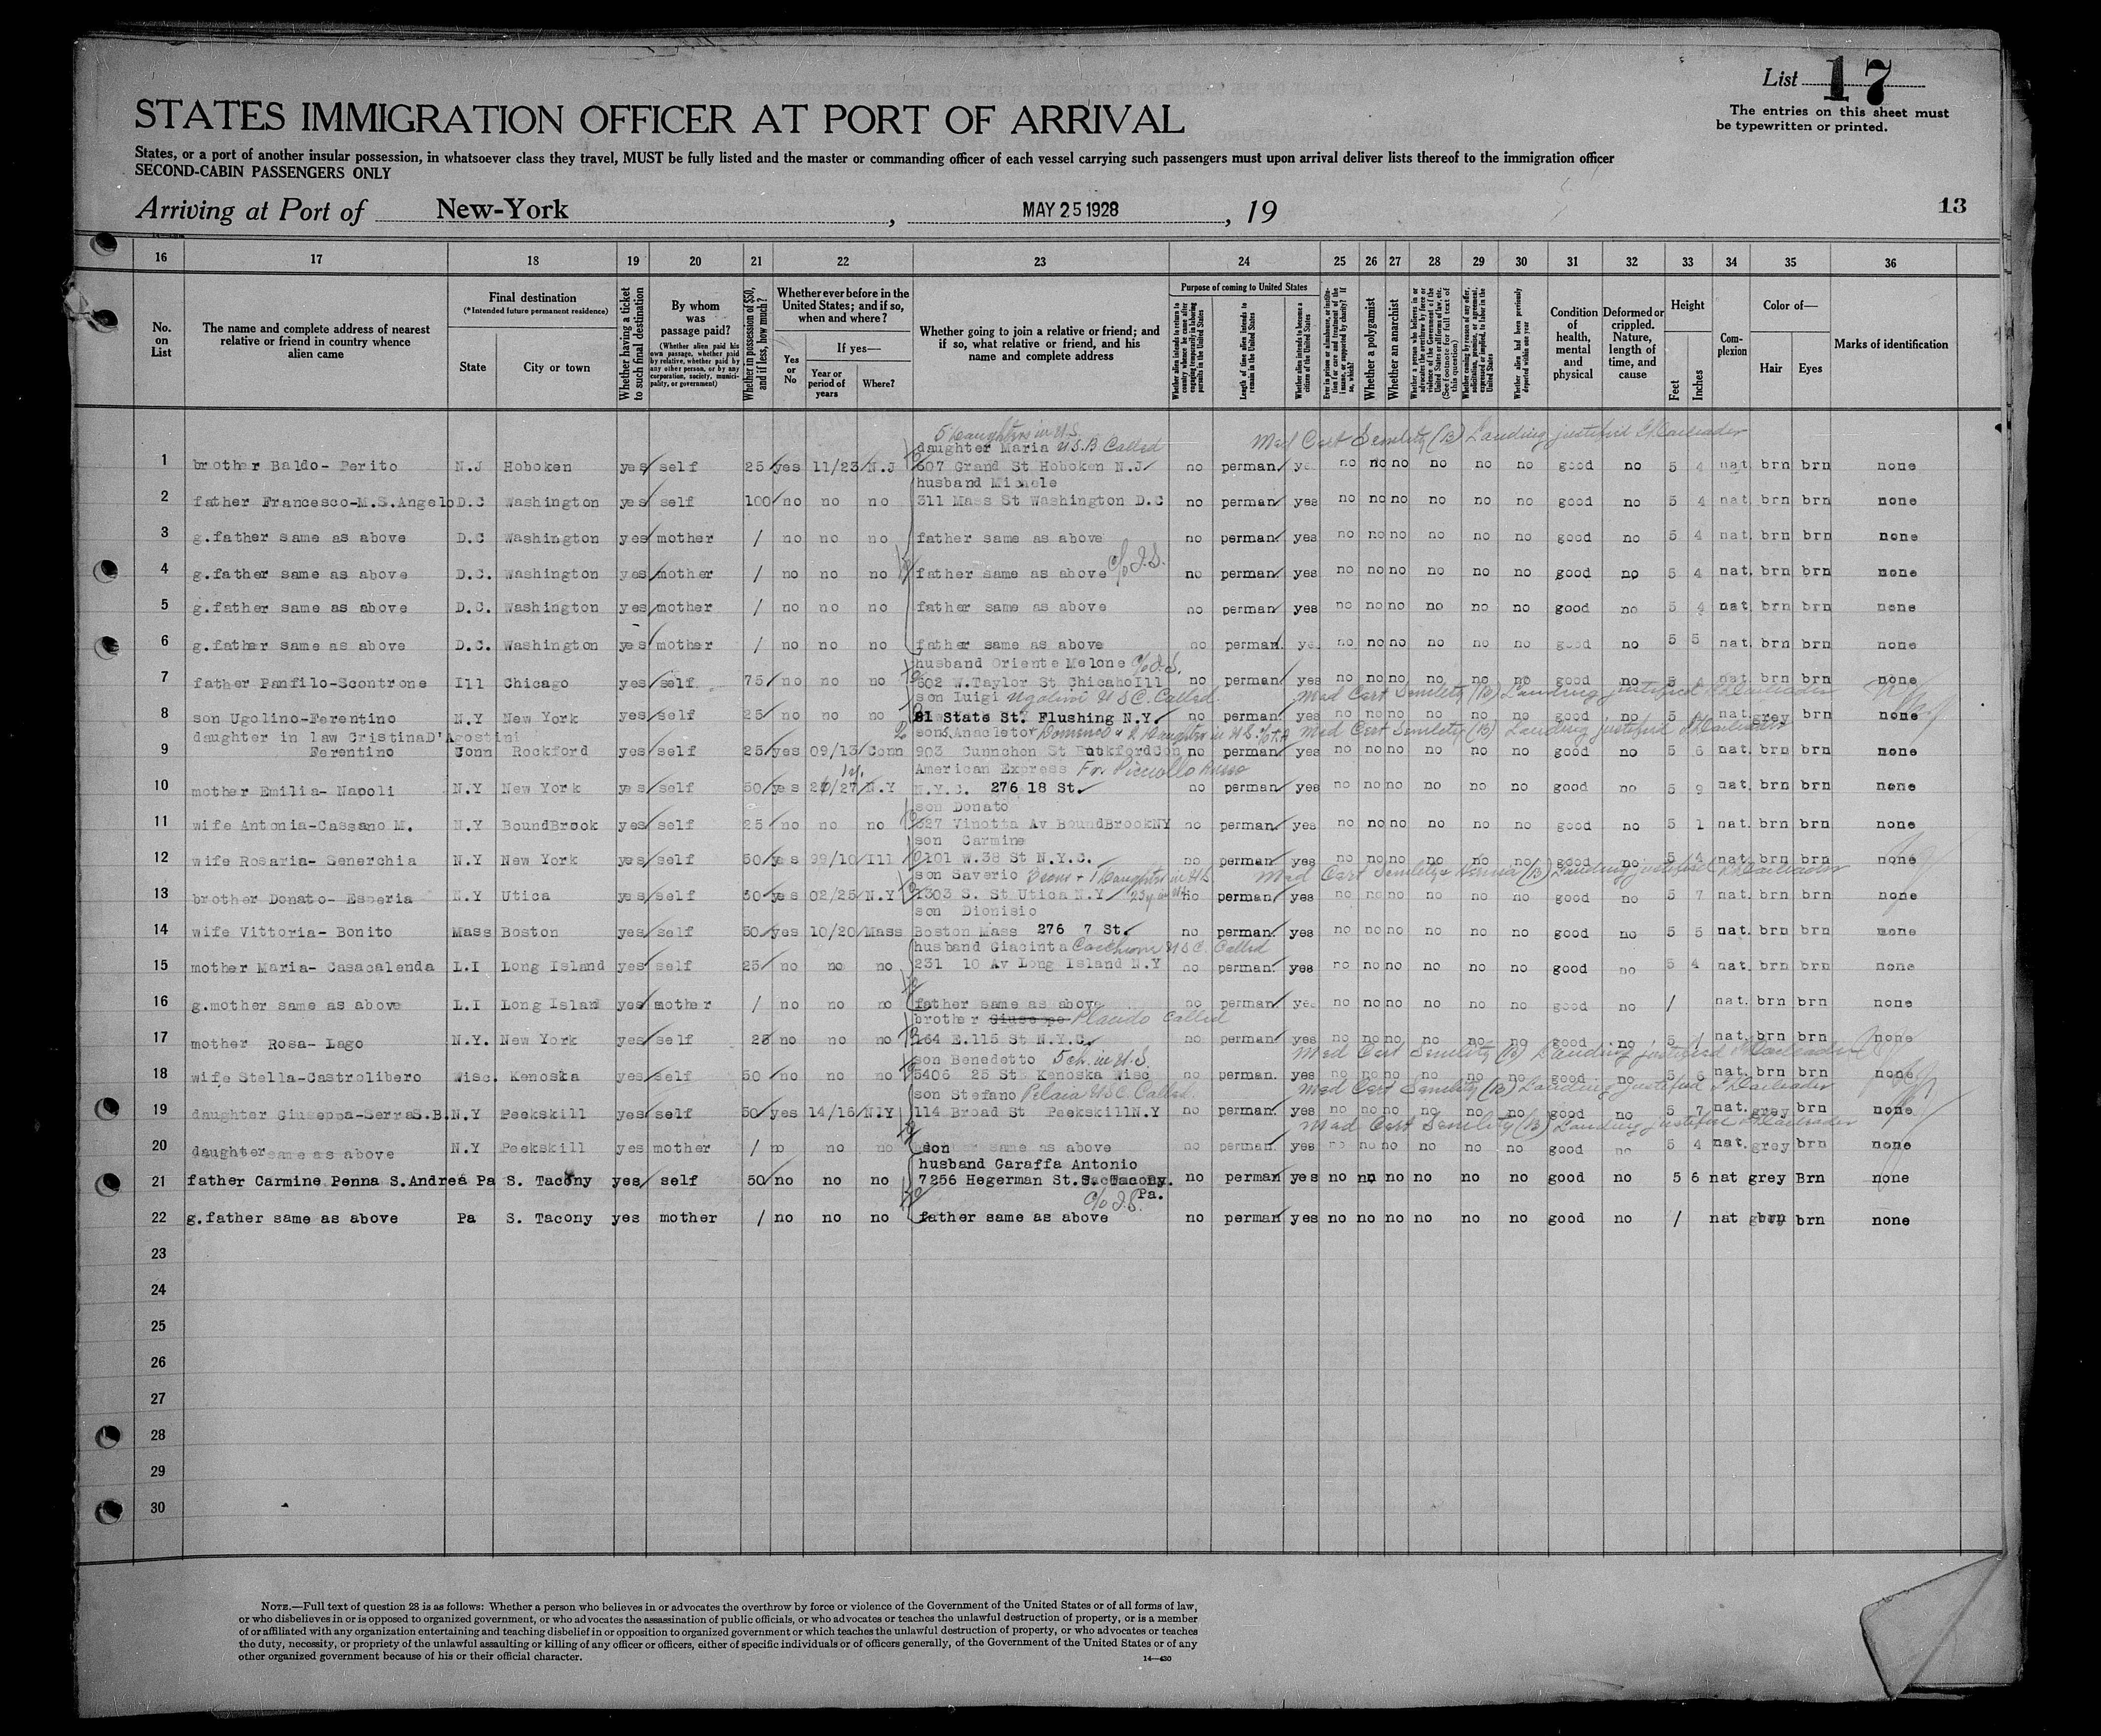 List 17
The entries on this sheet must
be typewritten or printed.
STATES IMMIGRATION OFFICER AT PORT OF ARRIVAL
States, or a port of another insular possession, in whatsoever class they travel, MUST be fully listed and the master or commanding officer of each vessel carrying such passengers must upon arrival deliver lists thereof to the immigration officer
SECOND-CABIN PASSENGERS ONLY
Arriving at Port of New-York , MAY 25 1928 , 19
13
16 17 18 19 20 21 22 23 24 25 26 27 28 29 30 31 32 33 34 35 36
No. on List
The name and complete address of nearest relative or friend in country whence alien came
Final destination
(*Intended future permanent residence)
State
City or town
Whether having a ticket to such final destination
By whom was passage paid?
(Whether alien paid his own passage, whether paid by relative, whether paid by any other person, or by any corporation, society, municipality, or government)
Whether in possession of $50, and if less, how much?
Whether ever before in the United States; and if so, when and where?
Yes or No
If yes—
Year or period of years
Where?
Whether going to join a relative or friend; and if so, what relative or friend, and his name and complete address
Purpose of coming to United States
Length of time alien intends to remain in the United States
Whether alien intends to become a citizen of the United States
Whether a polygamist
Whether an anarchist
Condition of health, mental and physical
Deformed or crippled. Nature, length of time, and cause
Height
Feet
Inches
Complexion
Color of—
Hair
Eyes
Marks of identification
5 daughters in U.S.
daughter Maria U.S.B Called
Med Cert Senility (B) Landing justified
1 brother Baldo- Perito N.J Hoboken yes self 25 yes 11/23 N.J 607 Grand St Hoboken N.J no perman. no no no no no no good no 5 4 nat brn brn none
husband Michele
2 father Francesco-M.S.Angelo D.C Washington yes self 100 no no no 311 Mass St Washington D.C no perman yes no no no no no no good no 5 4 nat brn brn none
3 g.father same as above D.C Washington yes mother / no no no father same as above no perman yes no no no no no no good no 5 4 nat. brn brn none
4 g.father same as above D.C. Washington yes mother / no no no father same as above no perman yes no no no no no no good no 5 4 nat. brn brn none
5 g.father same as above D.C. Washington yes mother / no no no father same as above no perman yes no no no no no no good no 5 4 nat. brn brn none
6 g.father same as above D.C. Washington yes mother / no no no father same as above no perman. no no no no no no good no 5 5 nat. brn brn none
husband Oriente Melone
7 father Panfilo-Scontrone Ill Chicago yes self 75 no no no 502 W.Taylor St Chicaho Ill no perman yes no no no no no no good no nat. brn brn none
son Luigi Ugolini U S C. Called. Med Cert Senility (B) Landing justified
8 son Ugolino-Ferentino N.Y New York yes self 25 no no no 91 State St. Flushing N.Y. no perman. yes no no no no no no good no nat. grey brn none
daughter in law CristinaD'Agostini
Med Cert Senility (B) Landing justified
9 Ferentino Conn Rockford yes self 25 yes 09/13 Conn 903 no perman yes no no no no no no good no 5 6 nat. brn brn none
American Express Fr. Picciollo
10 mother Emilia- Napoli N.Y New York yes self 50 yes N.Y N.Y.C. 276 18 St. no perman yes no no no no no no good no 5 9 nat. brn brn none
son Donato
11 wife Antonia-Cassano M. N.Y BoundBrook yes self 25 no no no 527 Vinotta Av BoundBrookNY no perman. yes no no no no no no good no 5 1 nat. brn brn none
son Carmine
12 wife Rosaria- Senerchia N.Y New York yes self 50 yes 99/10 Ill 101 W.38 St N.Y.C. no perman yes no no no no no no good no 5 4 nat. brn brn none
son Saverio 3 sons + 1 daughter in U.S. Med Cert Senility & Hernia (B) Landing justified
13 brother Donato- Esperia N.Y Utica yes self 50 yes 02/25 N.Y 1303 S. St Utica N.Y no perman. yes no no no no no no good no 5 7 nat. brn brn none
son Dionisio
14 wife Vittoria- Bonito Mass Boston yes self 50 yes 10/20 Mass Boston Mass 276 7 St. no perman. yes no no no no no no good no 5 5 nat. brn brn none
husband Giacinta U S C. Called
15 mother Maria- Casacalenda L.I Long Island yes self 25 no no no 231 10 Av Long Island N.Y no perman. yes no no no no no no good no 5 4 nat. brn brn none
16 g.mother same as above L.I Long Islan yes mother / no no no father same as above no perman yes no no no no no no good no / nat. brn brn none
brother Giuseppe Placido Called
17 mother Rosa- Lago N.Y. New York yes self 25 no no no 164 E.115 St N.Y.C. no perman. yes no no no no no no good no 5 1 nat. brn brn none
son Benedetto 5 ch. in U.S Med Cert Senility (B) Landing justified
18 wife Stella-Castrolibero Wisc. Kenoska yes self 50 no no no 5406 25 St Kenoska Wisc no perman. yes no no no no no no good no 5 6 nat. brn brn none
son Stefano Pelaia U S C. Called. Med Cert Senility (B) Landing justified
19 daughter Giuseppa-SerraS.B. N.Y Peekskill yes self 50 yes 14/16 N.Y 114 Broad St PeekskillN.Y no perman. yes no no no no no no good no 5 7 nat. grey brn none
Med Cert Senility (B) Landing justified
20 daughter same as above N.Y Peekskill yes mother / no no no son same as above no perman yes no no no no no no good no 5 4 nat. grey brn none
husband Garaffa Antonio
21 father Carmine Penna S.Andrea Pa S. Tacony yes self 50 no no no 7256 Hegerman St. S. Tacony. Pa. no perman yes no no no no no no good no 5 6 nat grey Brn none
22 g.father same as above Pa S. Tacony yes mother / no no no father same as above no perman yes no no no no no no good no / nat brn brn none
23
24
25
26
27
28
29
30
NOTE.—Full text of question 28 is as follows: Whether a person who believes in or advocates the overthrow by force or violence of the Government of the United States or of all forms of law,
or who disbelieves in or is opposed to organized government, or who advocates the assassination of public officials, or who advocates or teaches the unlawful destruction of property, or is a member
of or affiliated with any organization entertaining and teaching disbelief in or opposition to organized government or which teaches the unlawful destruction of property, or who advocates or teaches
the duty, necessity, or propriety of the unlawful assaulting or killing of any officer or officers, either of specific individuals or of officers generally, of the Government of the United States or of any
other organized government because of his or their official character.
14—430